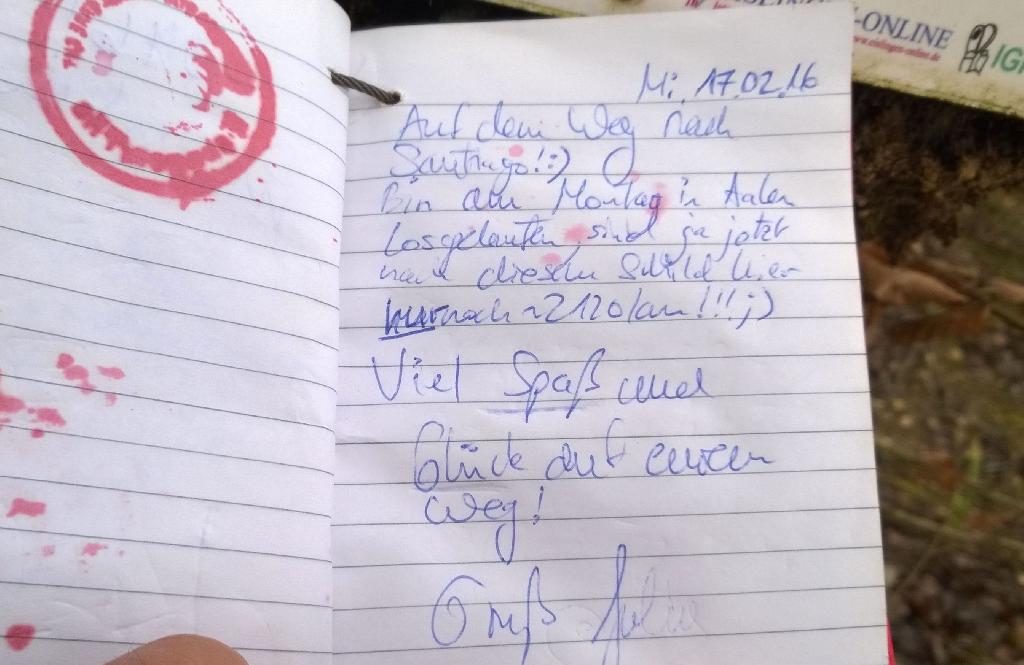 -ONLINE
Mi. 17.02.16
Auf dem Weg nach
Santiago! :)
Bin am Montag in Aalen
losgelaufen, sind ja jetzt
nach diesem Schild hier
nur noch ~2120 km!!! ;)
Viel Spaß und
Glück auf eurem
Weg!
Gruß